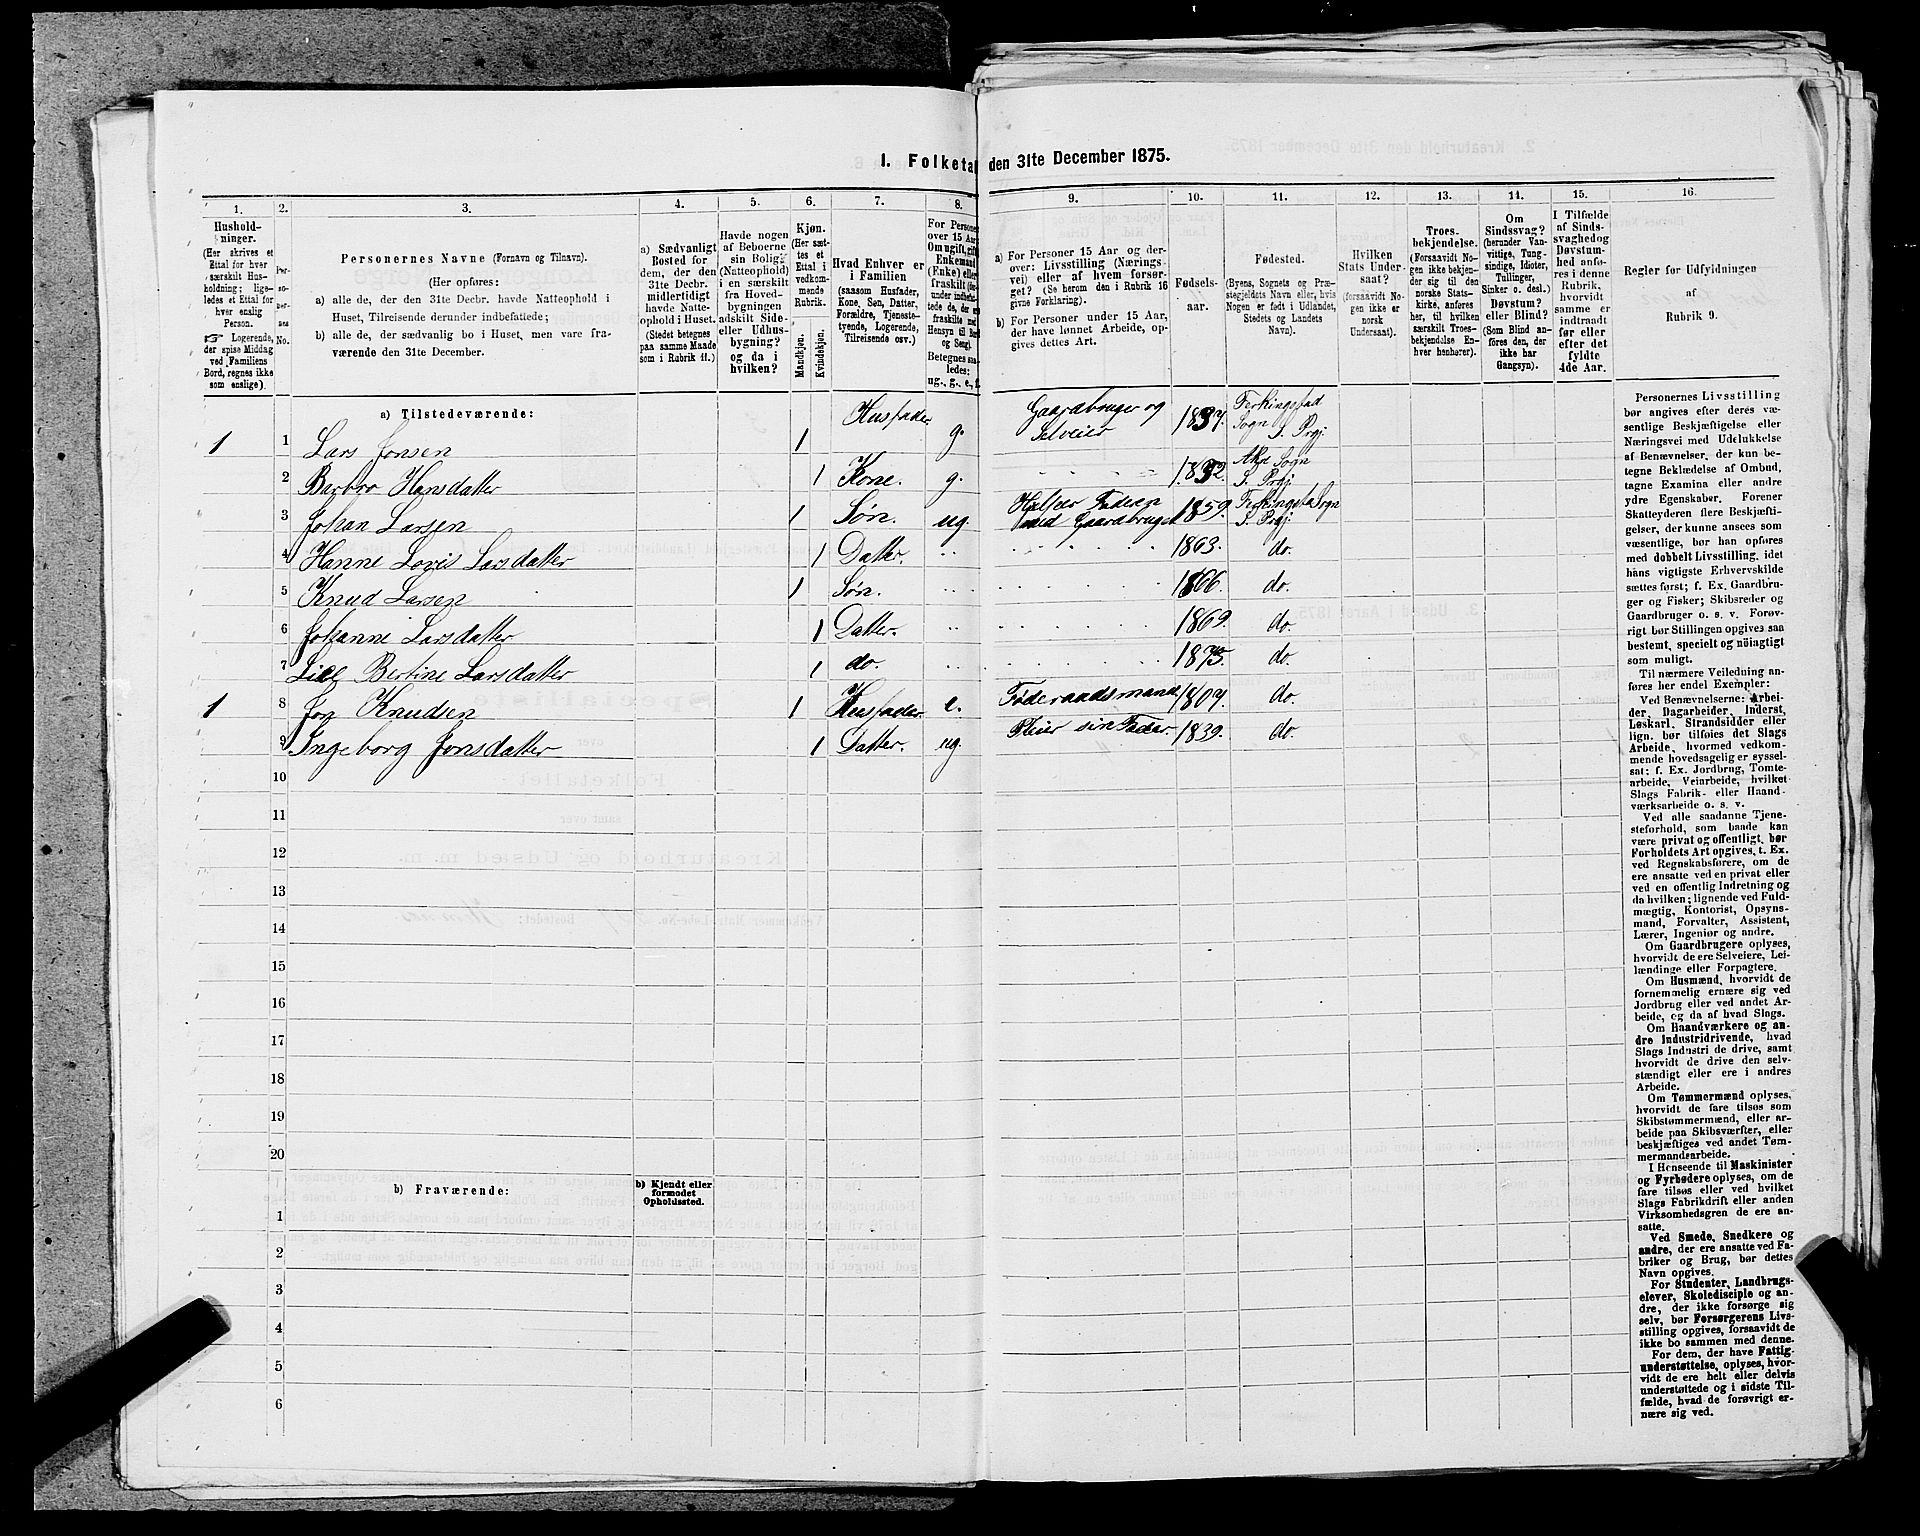 I. Folketal den 31te December 1875.
1. 2. 3. 4. 5. 6. 7. 8. 9. 10. 11. 12. 13. 14. 15. 16.
Hushold-
ninger.
(Her skrives et
Ettal for hver
særskilt Hus-
holdning; lige-
ledes et Ettal for
hver enslig
Person.
☞ Logerende,
der spise Middag
ved Familiens
Bord, regnes ikke
som enslige).
Per-
so-
ner-
nes
No.
Personernes Navne (Fornavn og Tilnavn).
(Her opføres:
a) alle de, der den 31te Decbr. havde Natteophold i
Huset, Tilreisende derunder indbefattede;
b) alle de, der sædvanlig bo i Huset, men vare fra-
værende den 31te December.
a) Sædvanligt
Bosted for
dem, der den
31te Decbr.
midlertidigt
havde Natte-
ophold i Huset.
(Stedet betegnes
paa samme Maade
som i Rubrik 11.)
Havde nogen
af Beboerne
sin Bolig
(Natteophold)
i en særskilt
fra Hoved-
bygningen
adskilt Side-
eller Udhus-
bygning?
og da i
hvilken?
Kjøn.
(Her sæt-
tes et
Ettal i
vedkom-
mende
Rubrik.
Mandkjøn.
Kvindekjøn.
Hvad Enhver er
i Familien
(saasom Husfader,
Kone, Søn, Datter,
Forældre, Tjeneste-
tyende, Logerende,
Tilreisende osv.)
For Personer
over 15 Aar:
Om ugift, gift,
Enkemand
(Enke) eller
fraskilt
Betegnes saa-
ledes:
ug., g., e., f.
a) For Personer 15 Aar og der-
over: Livsstilling (Nærings-
vei) eller af hvem forsør-
get? (Se herom den i Rubrik 16
givne Forklaring).
b) For Personer under 15 Aar,
der have lønnet Arbeide, op-
gives dettes Art.
Fødsels-
aar.
Fødested.
(Byens, Sognets og Præ-
stegjeldets Navn eller, hvis
Nogen er født i Udlandet,
Stedets og Landets
Navn).
Hvilken
Stats Under-
saat?
(forsaavidt No-
gen ikke er
norsk
Undersaat).
Troes-
bekjendelse.
(Forsaavidt No-
gen ikke bekjen-
der sig til den
norske Stats-
kirke, anføres
her, til hvilken
særskilt Troes-
bekjendelse En-
hver henhører).
Om
Sindssvag?
(herunder Van-
vittige, Tung-
sindige, Idioter,
Tullinger,
Sinker o. desl.)
Døvstum?
eller Blind?
(Som Blind an-
føres den, der
ikke har
Gangsyn).
I Tilfælde
af Sinds-
svaghed og
Døvstum-
hed anfø-
res i denne
Rubrik,
hvorvidt
samme er
indtraadt
før eller
efter det
fyldte
4de Aar.
Regler for Udfyldningen
af
Rubrik 9.
a) Tilstedeværende:
1 1 Lars Jonsen 1 Husfader. g. Gaardbruger og Selveier 1837. Ferkingstad Sogn S. Prgj.
2 Barbro Hansdatter 1 Kone. g. 1832. Akre Sogn S. Prgj.
3 Johan Larsen 1 Søn. ug. Hjelper Faderen med Gaardbruget 1859. Ferkingsta Sogn S. Prgj.
4 Hanne Lovis Larsdatter 1 Datter. 1863. do.
5 Knud Larsen 1 Søn. 1866. do.
6 Johanne Larsdatter 1 Datter. 1869. do.
7 Bertine Larsdatter 1 do. 1875. do.
1 8 Jon Knudsen 1 Husfader e. Føderaadsmand 1807. do.
9 Ingeborg Jonsdatter 1 Datter. ug. Pleier sin Fader. 1839. do.
10
11
12
13
14
15
16
17
18
19
20
b) Fraværende:
b) Kjendt eller
formodet
Opholdssted.
1
2
3
4
5
6
Personernes Livsstilling
bør angives efter deres væ-
sentlige Beskjæftigelse eller
Næringsvei med Udelukkelse
af Benævnelser, der kun be-
tegne Beklædelse af Ombud,
tagne Examina eller andre
ydre Egenskaber. Forener
Skatteyderen flere Beskjæfti-
gelser, der kunne ansees som
væsentlige, bør han opføres
med dobbelt Livsstilling, idet
hans vigtigste Erhvervskilde
sættes først; f. Ex. Gaardbru-
ger og Fisker; Skibsreder og
Gaardbruger o. s. v. Forøv-
rigt bør Stillingen opgives saa
bestemt, specielt og nöiagtigt
som muligt.
Til nærmere Veiledning an-
føres her endel Exempler:
Ved Benævnelserne: Arbei-
der, Dagarbeider, Inderst,
Løskarl, Strandsidder eller
lign. bør tilføies det Slags
Arbeide, hvormed vedkom-
mende hovedsagelig er syssel-
sat; f. Ex. Jordbrug, Tomte-
arbeide, Veiarbeide, hvilket
Slags Fabrik- eller Haand-
værksarbeide o. s. v.
Ved alle saadanne Tjene-
steforhold, som baade kan
være privat og offentligt, bør
Forholdets Art opgives, t. Ex.
ved Regnskabsførere, om de
ere ansatte ved en privat eller
ved en offentlig Indretning og
da hvilken; lignende ved Fuld-
mægtig, Kontorist, Opsyns-
mand, Forvalter, Assistent,
Lærer, Ingeniør og andre.
Om Gaardbrugere oplyses,
hvorvidt de ere Selveiere, Lei-
lændinge eller Forpagtere.
Om Husmænd, hvorvidt de
fornemmelig ernære sig ved
Jordbrug eller ved andet Ar-
beide, og da af hvad Slags.
Om Haandværkere og an-
dre Industridrivende, hvad
Slags Industri de drive, samt
hvorvidt de drive den selv-
stændigt eller ere i andres
Arbeide.
Om Tømmermænd oplyses,
hvorvidt de fare tilsøs som
Skibstømmermænd, eller ar-
beide paa Skibsværfter, eller
beskjæftiges ved andet Tøm-
mermandsarbeide.
I Henseende til Maskinister
og Fyrbødere oplyses, om de
fare tilsøs eller ved hvilket
Slags Fabrikdrift eller anden
Virksomhedsgren de ere an-
satte.
Ved Smede, Snedkere og
andre, der ere ansatte ved Fa-
briker og Brug, bør dettes
Navn opgives.
For Studenter, Landbrugs-
elever, Skoledisciple og an-
dre, der ikke forsørge sig
selv, bør Forsørgerens Livs-
stilling opgives, forsaavidt de
ikke bo sammen med denne.
For dem, der have Fattig-
understøttelse, oplyses, hvor-
vidt de ere helt eller delvis
understøttede og i sidste Til-
fælde, hvad de forøvrigt er-
nære sig ved.